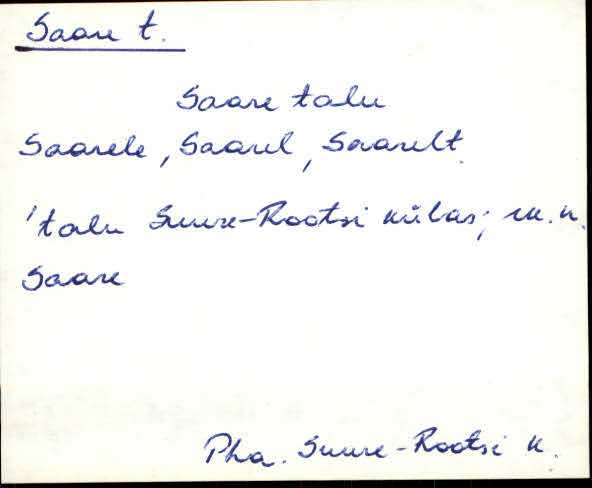 Saare t.
Saare talu
Saarele, Saarel, Saarelt
'talu Suure-Rootsi külas; rk. n.
Saare
Pha. Suure-Rootsi k.